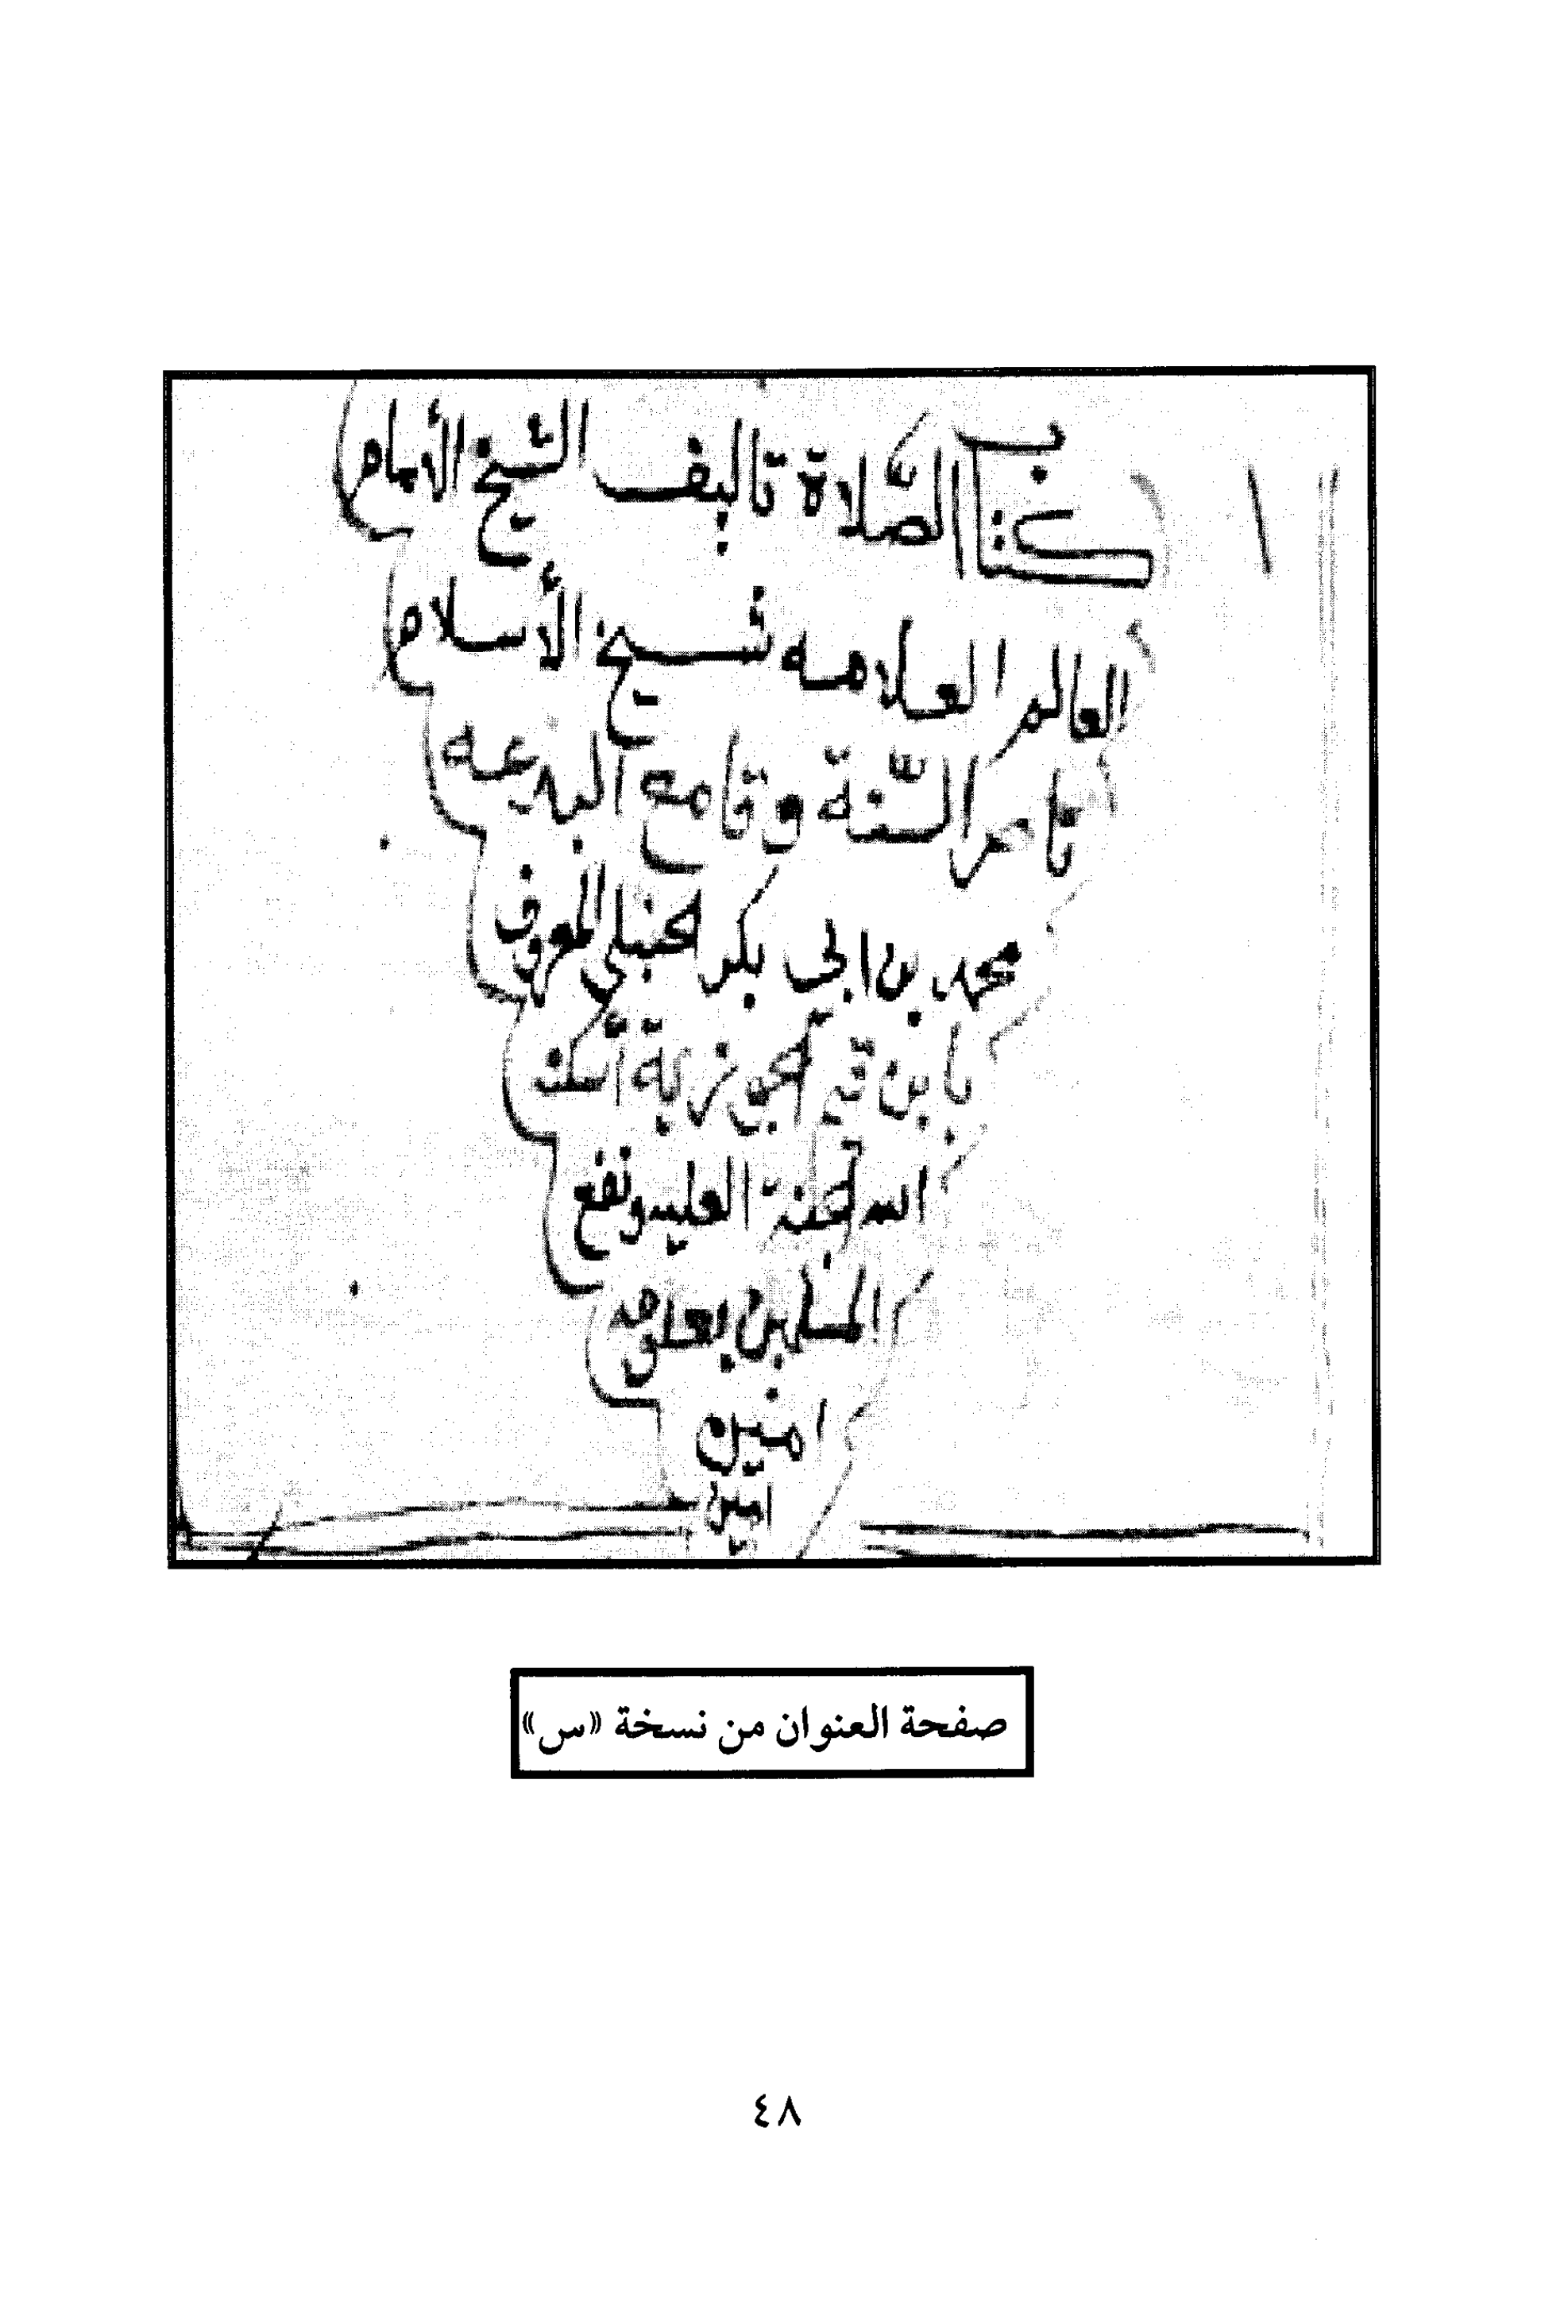 كتاب الصّلاة تاليف الشيخ الأمام
العالم العلامه شيخ الأسلام
ناصر السّنة وقامع البدعه
محمد بن ابي بكر الحنبلي المعروف
بابن قيم الجوزية أسكنه
الله الجنة العليه ونفع
المسلمين بعلومه
امين
امين
صفحة العنوان من نسخة «س»
٤٨